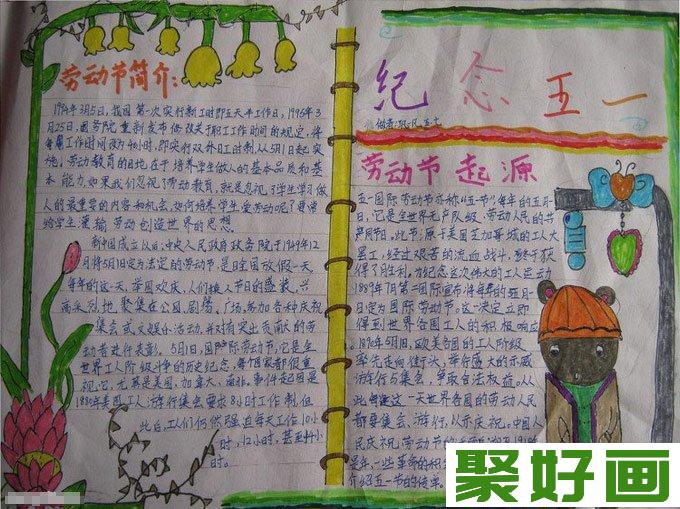 劳动节简介：
1994年3月5日，我国第一次实行新工时即五天半工作日，1995年3
月25日，国务院重新发布修改关于职工工作时间的规定，将
每周工作时间改为40小时，即实行双休日工时制，从5月1日起实
施。劳动教育的目地，在于培养学生做人的基本品质和基
本能力。如果我们忽视了劳动教育，就是忽视了学生学习做
人的最重要的内容和机会。如何培养学生爱劳动呢？要常
给学生灌输劳动创造世界的思想。
新中国成立以后，中央人民政府政务院于1949年12
月将5月1日定为法定的劳动节，是日全国放假一天。
每年的这一天，举国欢庆，人们换上节日的盛装，兴
高采烈地聚集在公园、剧院、广场，参加各种庆祝
集会或文娱乐活动，并对有突出贡献的劳
动者进行表彰。5月1日，国际劳动节，它是全
世界工人阶级斗争的历史纪念，每个国家都很重
视它，尤其是美国、加拿大、南非。事件起因是
1880年美国工人游行集会要求8小时工作制，但
此后，工人们仍然强迫每天工作10小
时，12小时，甚至14小
时。
纪念五一
劳动节起源
五一国际劳动节亦称"五一节"，每年的五月一
日，它是全世界无产队级、劳动人民的节
日。此节源于美国芝加哥城的工人大
罢工，经过艰苦的流血战斗，终于获
得了胜利，为纪念这次伟大的工人运动
1889年7月第二国际宣布将每年的五月一
日定为国际劳动节。这一决定立即
得到世界各国工人的积极响应。
1890年5月1日，欧美各国的工人阶级
率先走向街头，举行盛大的示威
游行与集会，争取合法权益。从
此每逢这一天世界各国的劳动人民
都要集会、游行，以示庆祝。中国人
民庆祝劳动节的
是年，一些革命的
介绍五一节的传单。
聚好画